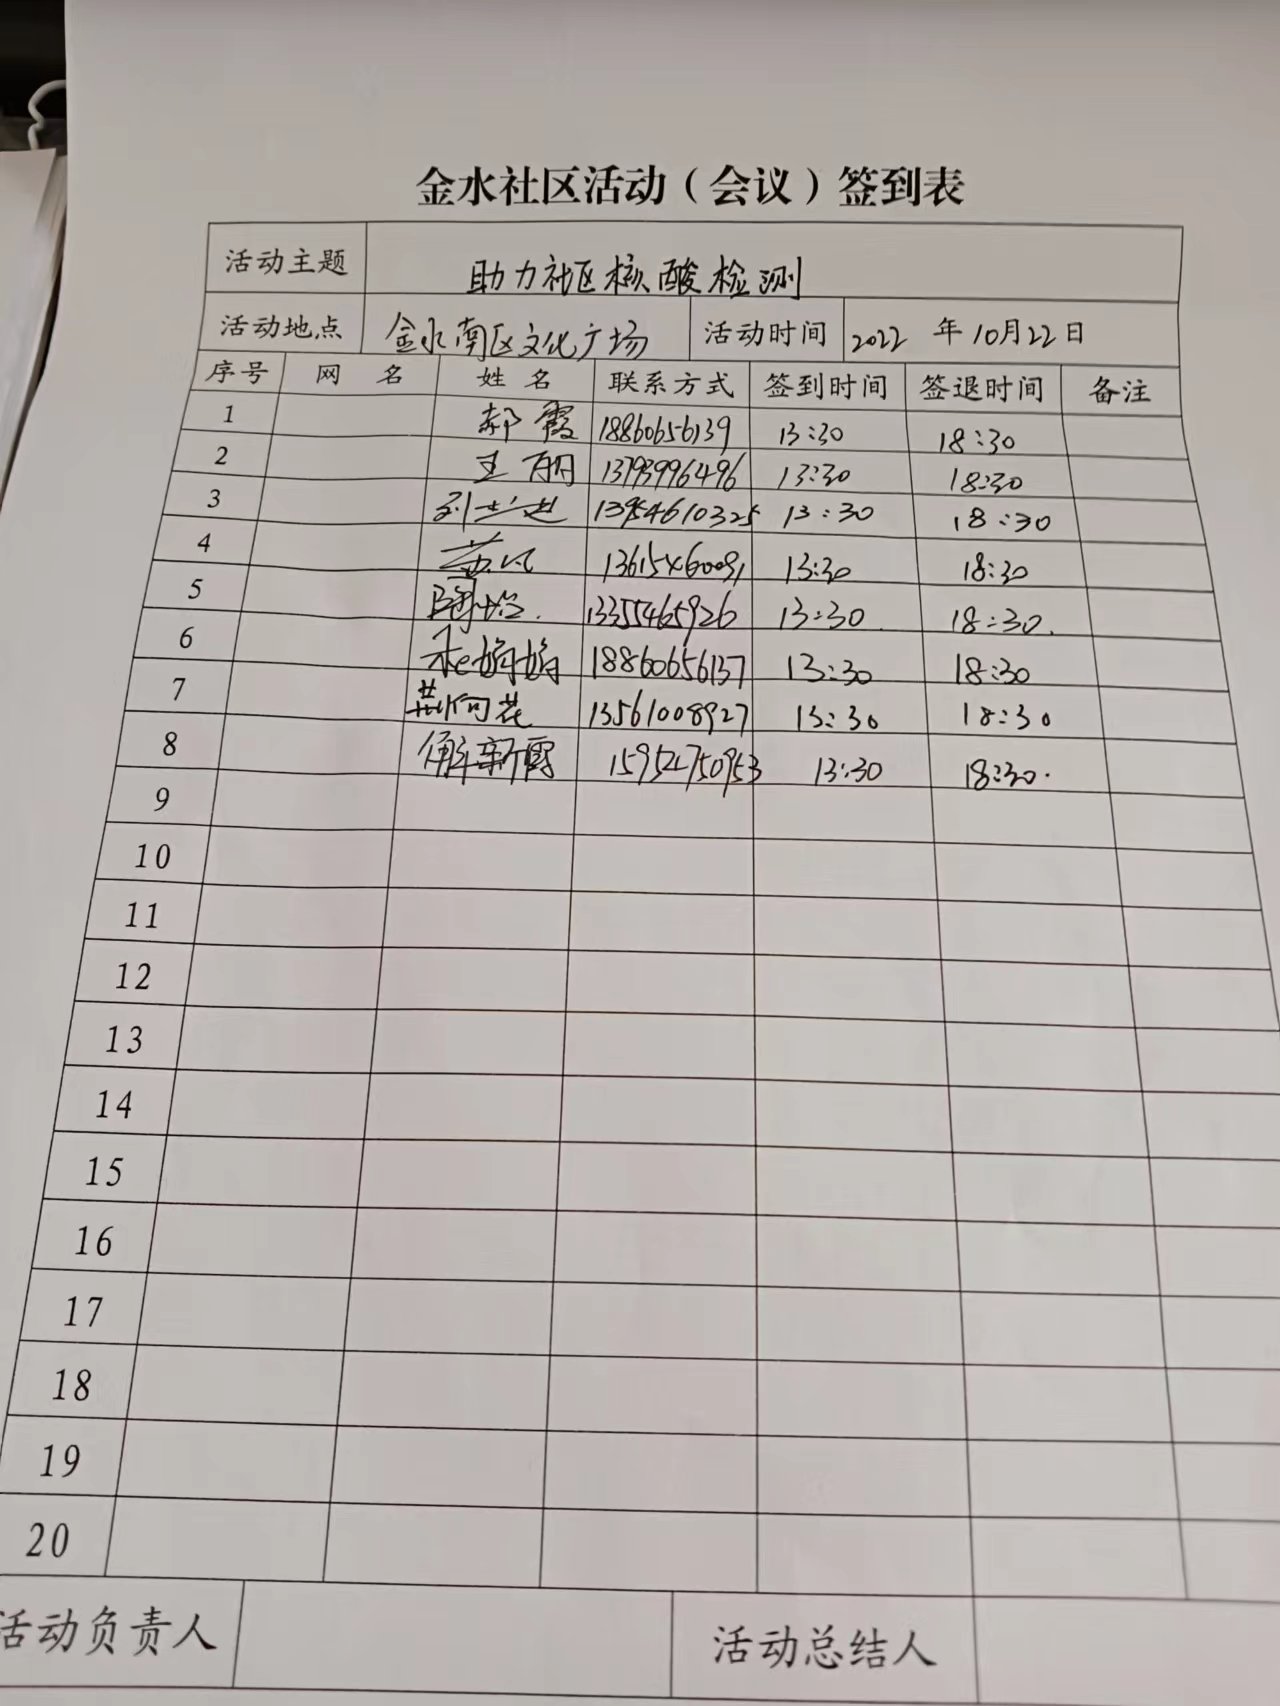 金水社区活动（会议）签到表
活动主题 助力社区核酸检测
活动地点 金水南区文化广场 活动时间 2022 年10月22日
序号 网 名 姓 名 联系方式 签到时间 签退时间 备注
1 郝霞 18860656139 13:30 18:30
2 王丽 13793996496 13:30 18:30
3 刘兰进 13954610325 13:30 18:30
4 13:30 18:30
5 13355465926 13:30 18:30
6 18860656137 13:30 18:30
7 荆向花 13561008927 13:30 18:30
8 解新霞 13:30 18:30
9
10
11
12
13
14
15
16
17
18
19
20
活动负责人 活动总结人